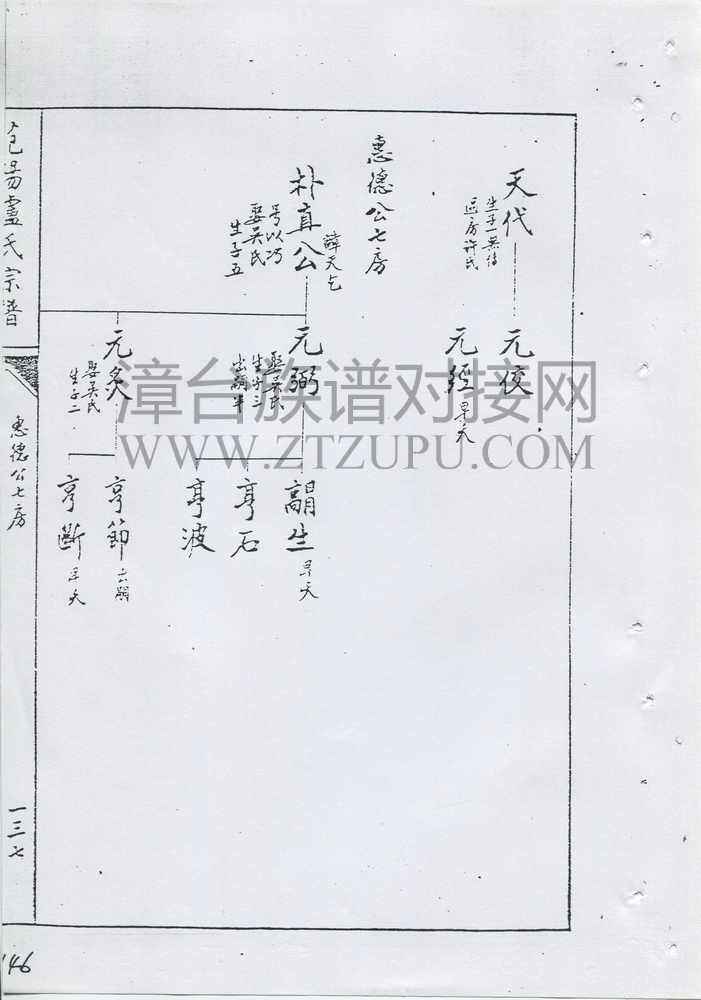 天代
生子一吳傳
區房許氏
元佼
元經
早夭
惠德公七房
朴真公
諱天乞
号以巧
娶吳氏
生子五
元弼
娶吳氏
生子三
出嗣半
元炙
娶吳氏
生子二
生
早夭
亨石
亨波
亨節
出嗣
亨斷
早夭
盧氏宗譜
惠德公七房
一三七
146
漳台族谱对接网
WWW.ZTZUPU.COM